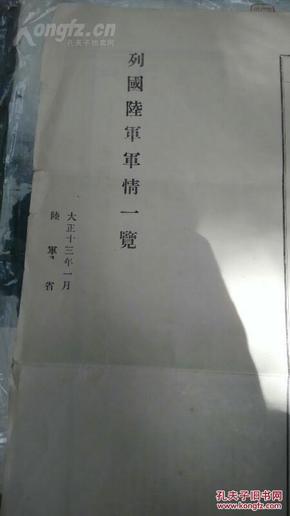 Kongfz.com
孔夫子旧书网
列國陸軍軍情一覽
大正十三年一月
陸軍省
孔夫子旧书网
KONGFZ.COM